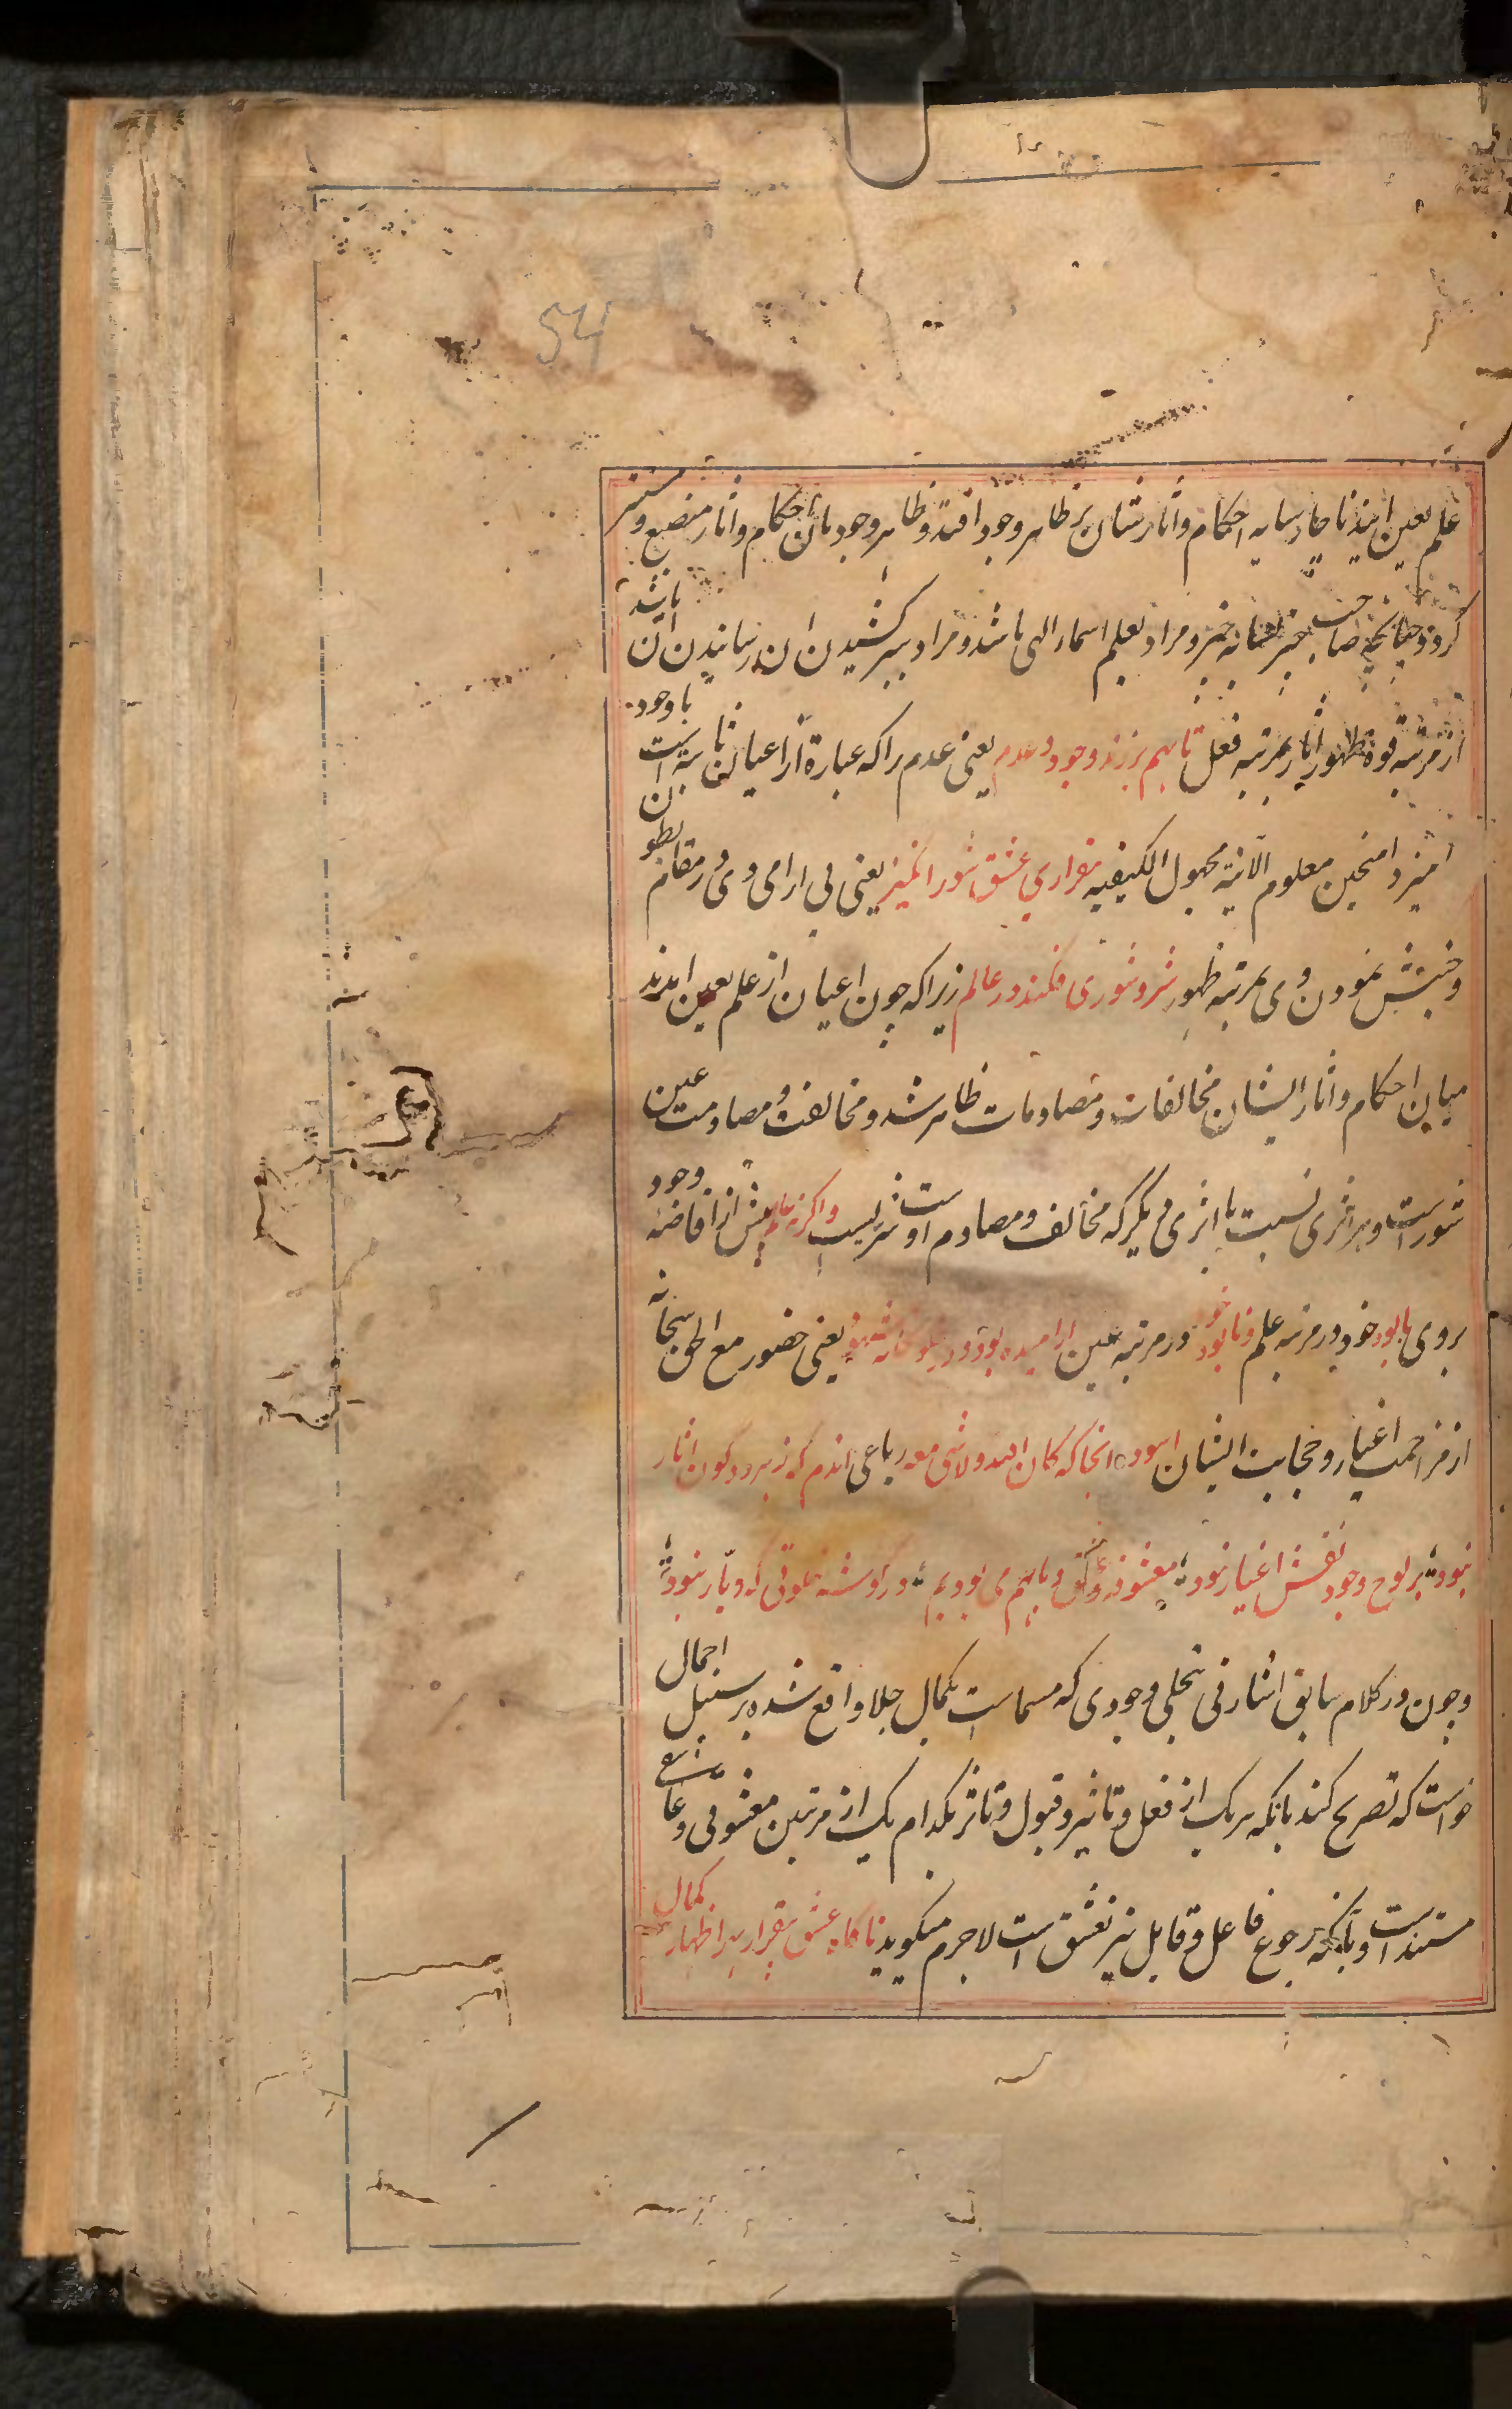 54
علم بعین ایند ناچار سایه احکام و اثارشان بر ظاهر وجود افتد و ظاهر وجود بان احکام و اثار منصبغ و مستتر
کردد چنانچه صاحب خبر خانه خبر و مراد بعلم اسماء الهی باشد و مراد بسر کشیدن ان رسانیدن ان باشد
از مرتبه قوة ظهور اثار بمرتبه فعل تا بهم بر زند وجود و عدم یعنی عدم را که عبارة از اعیان ثابته است با وجود
امیزد امیختن معلوم الانیة مجهول الکیفیه بیقراری عشق شورانکیز یعنی بی ارامی وی در مقام بطون
و جنبش نمودن وی بمرتبه ظهور شر و شوری فکند در عالم زیرا که چون اعیان از علم بعین امدند
میان احکام و اثار ایشان مخالفات و مصادمات ظاهر شد و مخالفت و مصادمت عین
شورست و هر اثری نسبت با اثری دیکر که مخالف و مصادم اوست شریست و اکرنه عالم پیش از افاضه وجود
بر وی با بود خود در مرتبه علم و نابود خود در مرتبه عین ارامیده بود و در خلوتخانه شهود یعنی حضور مع الحق سبحانه
از مزاحمت اغیار و حجابیت ایشان اسوده انجا که کان الله و لا شی معه رباعی اندم که ز هر دو کون اثار
نبود بر لوح وجود نقش اغیار نبود معشوقه و عشق و ما بهم می بودیم در کوشه خلوتی که دیار نبود
و چون در کلام سابق اشارتی بتجلی وجودی که مسماست بکمال جلا واقع شده بر سبیل اجمال
خواست که تصریح کند بانکه هر یک از فعل و تاثیر و قبول و تاثر بکدام یک از مرتبتین معشوقی و عاشقی
مستند است و بانکه رجوع فاعل و قابل نیز بعشق است لاجرم میکوید ناکاه عشق بیقرار بهر اظهار کمال